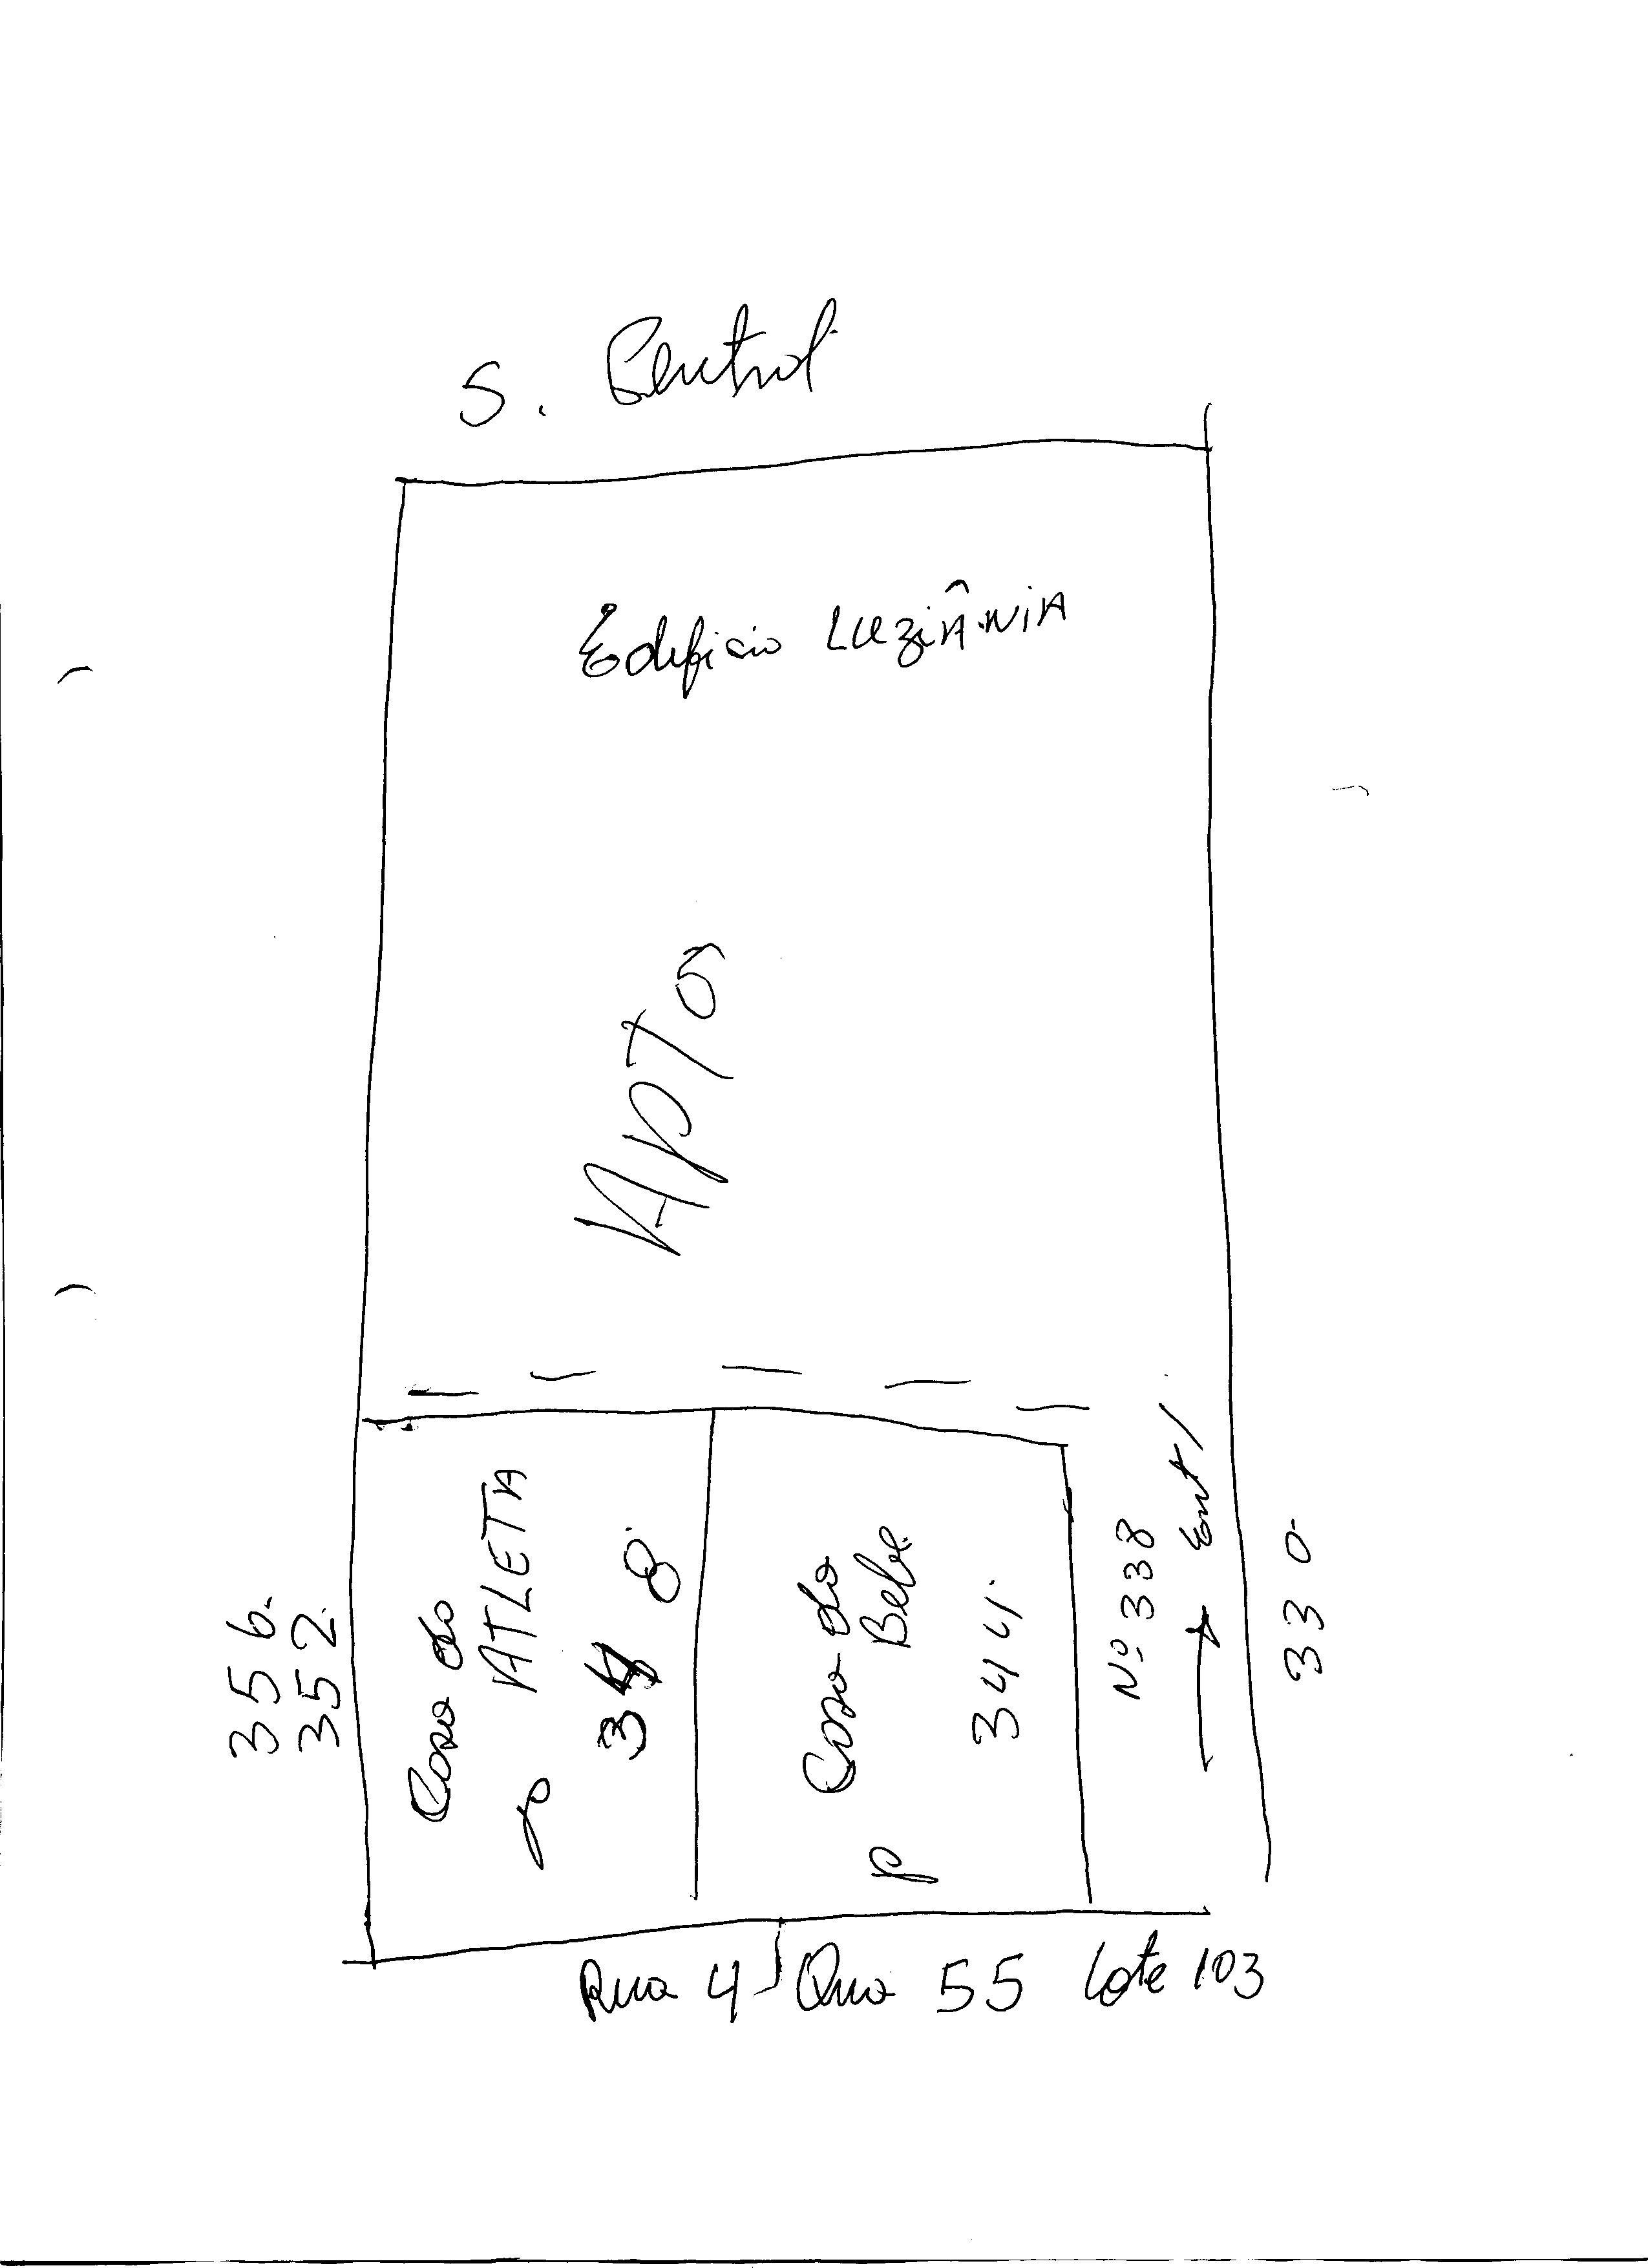 S. Central
Edificio LUZiÂNiA
APTOS
356
352
Casa do
ATLETA
348
Casa do
Bebe
344
Nº 338
330
Rua 4 Qua 55 Lote 103